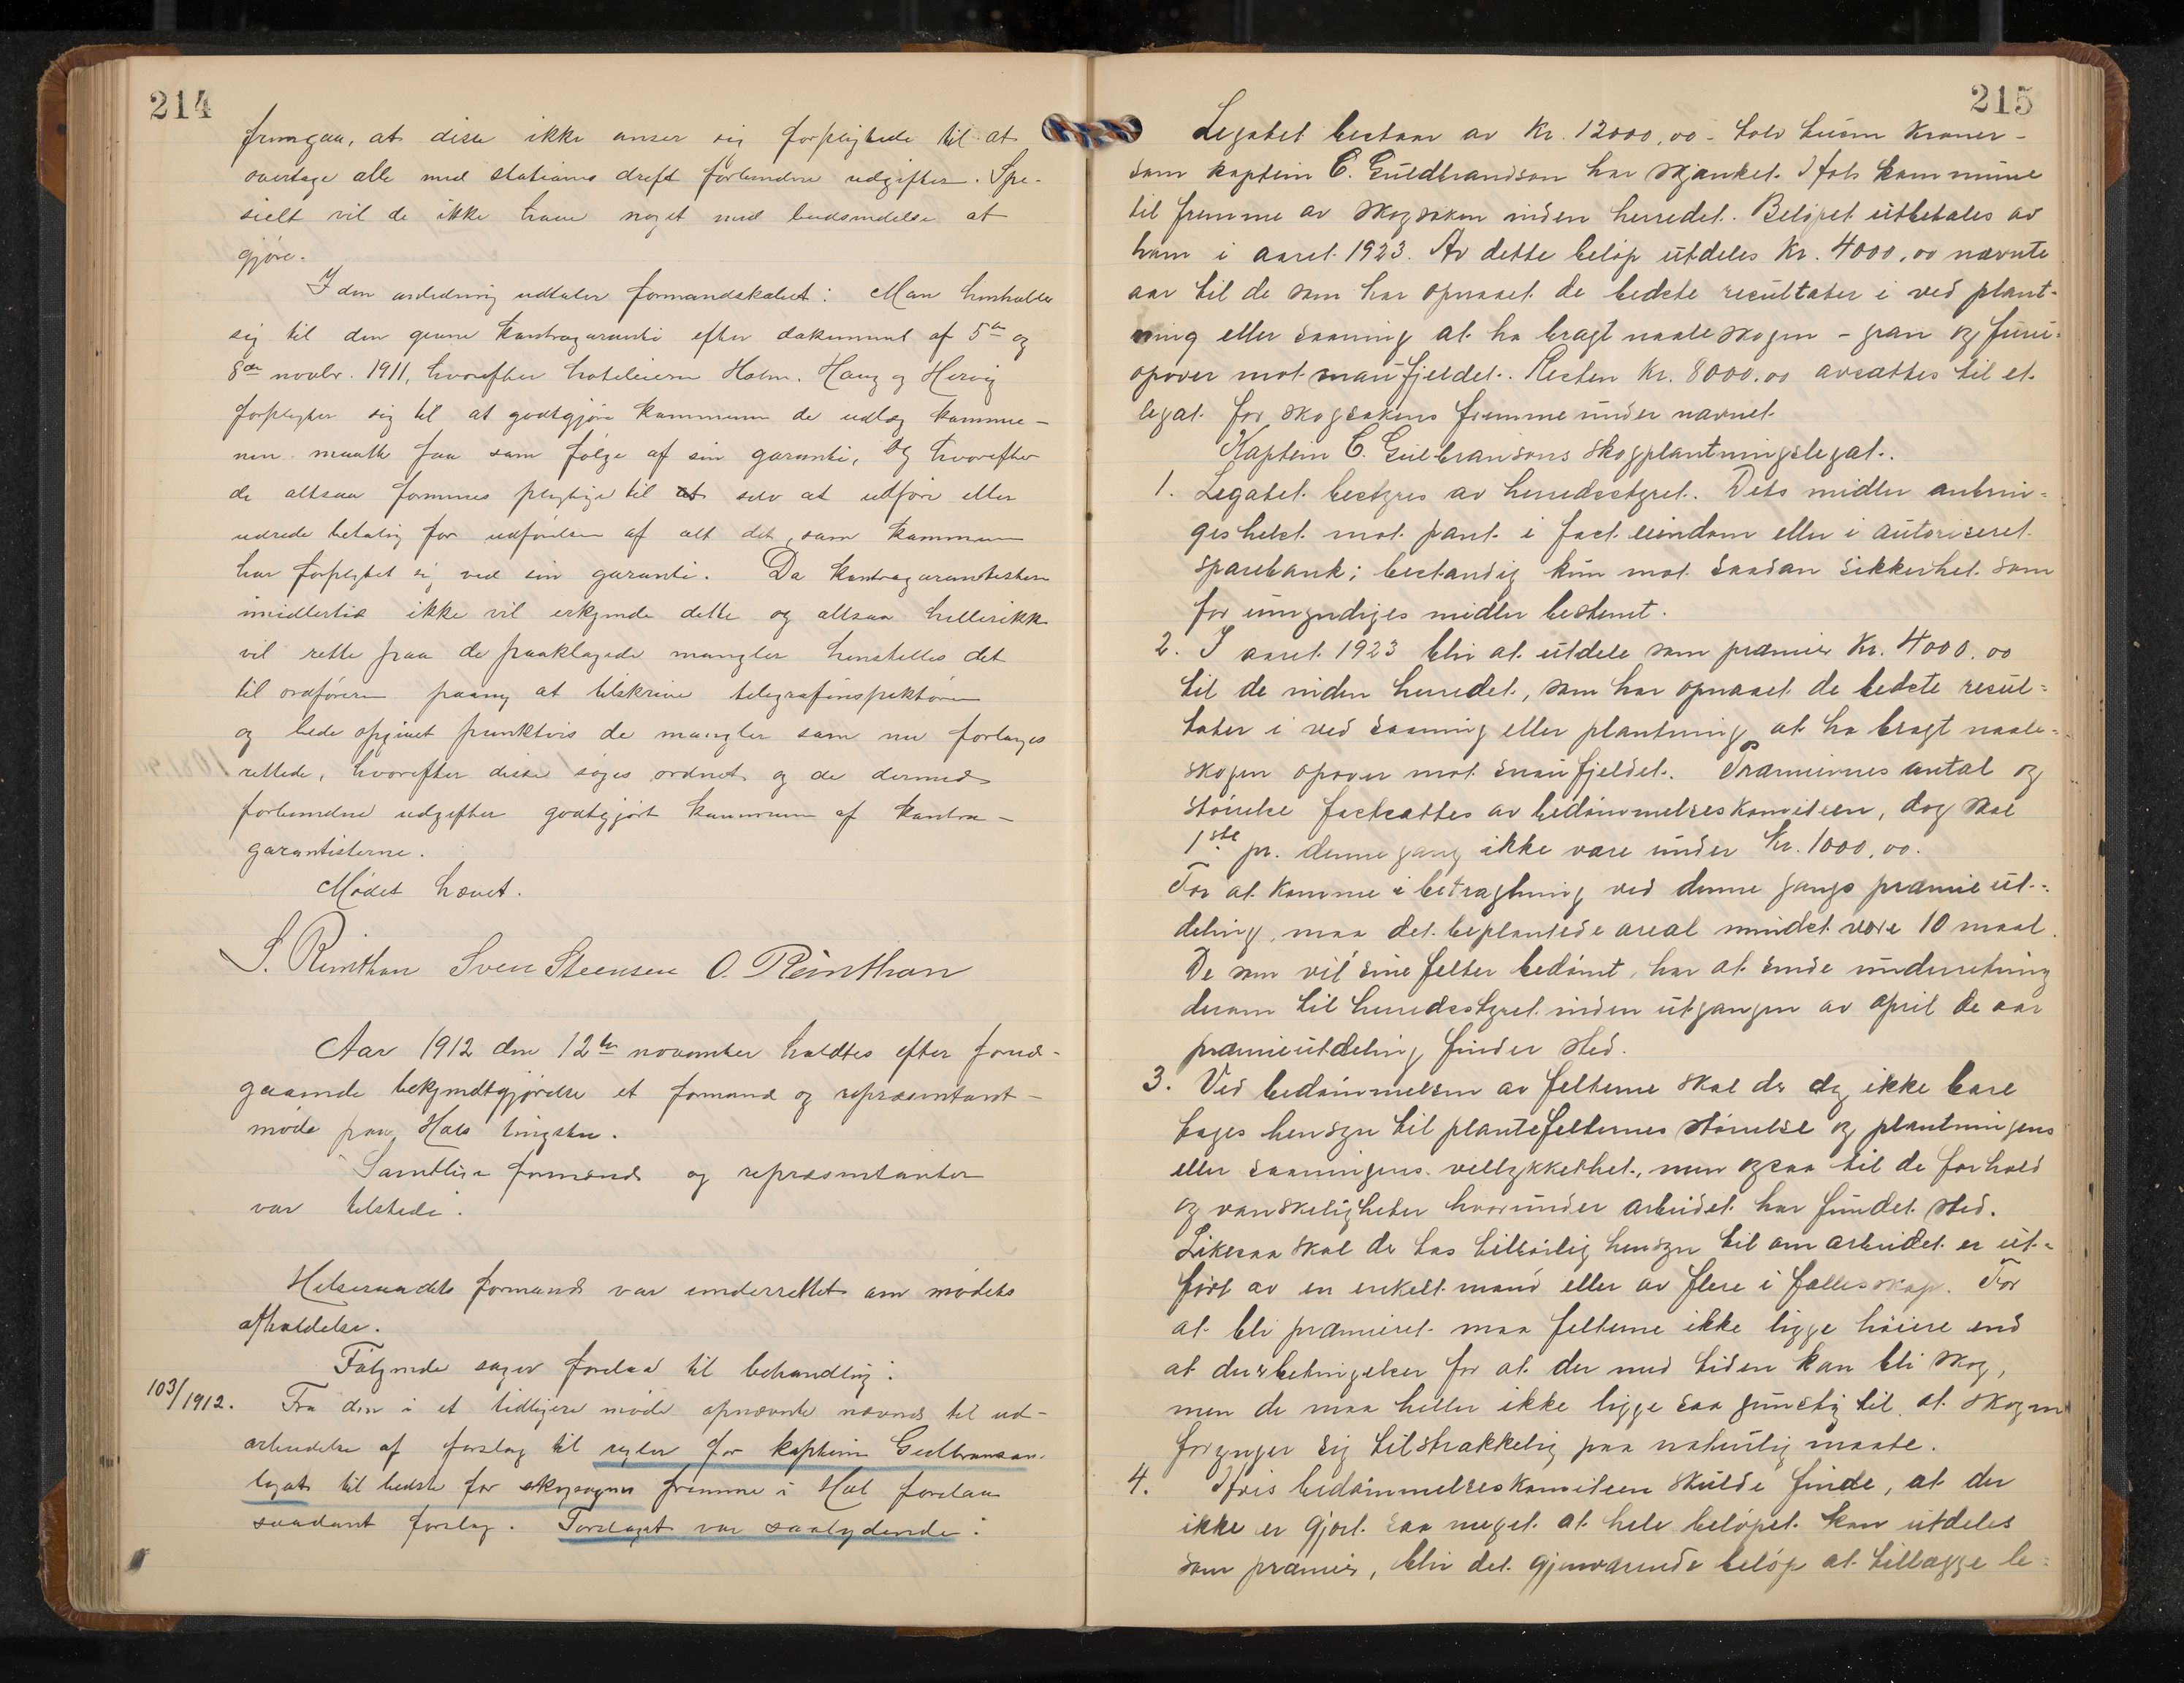 214
fremgaa, at disse ikke anser sig forpligtede til at
overtage alle med stations drift forbundne udgifter. Spe-
sielt vil de ikke have noget med budsendelse at
gjøre.
I den anledning udtaler formandskabet: Man henholder
sig til den givne kontragaranti efter dokument af 5te og
8de novbr. 1911, hvorefter hoteleierne Holm, Haug og Hervig
forpligter sig til at godtgjøre kommunen de udlæg kommu-
nen maatte faa som følge af sin garanti, og hvorefter
de altsaa formenes pligtige til at selv at udføre eller
udrede betaling for udførelsen af alt det, som kommunen
har forpligtet sig ved sin garanti. Da kontragarantisterne
imidlertid ikke vil erkjende dette og altsaa hellerikke
vil rette paa de paaklagede mangler henstilles det
til ordføreren paany at tilskrive telegrafinspektøren
og bede opgivet punktvis de mangler som nu forlanges
rettede, hvorefter disse søges ordnet og de dermed
forbundne udgifter godtgjort kommunen af kontra-
garantisterne.
Mødet hævet.
S. Reinthon Sven Steensen O. Reinthon
Aar 1912 den 12te november holdtes efter forud-
gaaende bekjendtgjørelse et formand og repræsentant-
møde paa Hols tingstue.
Samtlige formænd og repræsentanter
var tilstede.
Helseraadets formand var underrettet om mødets
afholdelse.
Følgende sager forelaa til behandling:
103/1912. Fra den i et tidligere møde opnævnte nævnd til ud-
arbeidelse af forslag til regler for kaptein Gulbranson-
legat til bedste for skogsagens fremme i Hol forelaa
saadant forslag. Forslaget var saalydende:
215
Legatet bestaar av Kr. 12000,00 - tolv tusen kroner -
som kaptein C. Guldbrandson har skjænket Hols kommune
til fremme av skogsaken inden herredet. Beløpet utbetales av
ham i aaret 1923. Av dette beløp utdeles Kr. 4000,00 nævnte
aar til de som har opnaaet de bedste resultater i ved plant-
ning eller saaning at ha bragt naaleskogen - gran og furu-
opover mot snaufjeldet. Resten Kr. 8000,00 avsættes til et
legat for skogsakens fremme under navnet
Kaptein C. Gulbransons skogplantningslegat.
1. Legatet bestyres av herredsstyret. Dets midler anbrin-
ges helst mot pant i fast eiendom eller i autoriseret
sparebank; bestandig kun mot saadan sikkerhet som
for umyndiges midler bestemt.
2. I aaret 1923 blir at utdele som præmier Kr. 4000.00
til de inden herredet, som har opnaaet de bedste resul-
tater i ved saaning eller plantning at ha bragt naale-
skogen opover mot snaufjeldet. Præmiernes antal og
størrelse fastsættes av bedømmelseskomiteen, dog skal
1ste pr. denne gang ikke være under Kr. 1000,00.
For at komme i betragtning ved denne gangs præmieut-
deling, maa det beplantede areal mindst være 10 maal.
De som vil sine felter bedømt, har at sende underretning
derom til herredsstyret inden utgangen av april de aar
præmieutdeling finder sted.
3. Ved bedømmelsen av felterne skal der dog ikke bare
tages hensyn til plantefelternes størrelse og plantningens
eller saaningens vellykkethet, men ogsaa til de forhold
og vanskeligheter hvorunder arbeidet har fundet sted.
Likesaa skal der tas tilbørlig hensyn til om arbeidet er ut-
ført av en enkelt mand eller av flere i fællesskap. For
at bli præmieret maa felterne ikke ligge høiere end
at der er betingelser for at der med tiden kan bli skog,
men de maa heller ikke ligge saa gunstig til at skogen
forynger sig tilstrækkelig paa naturlig maate.
4. Hvis bedømmelseskomiteen skulde finde, at der
ikke er gjort saa meget at hele beløpet kan utdeles
som præmier, blir det gjenværende beløp at tillægge le-